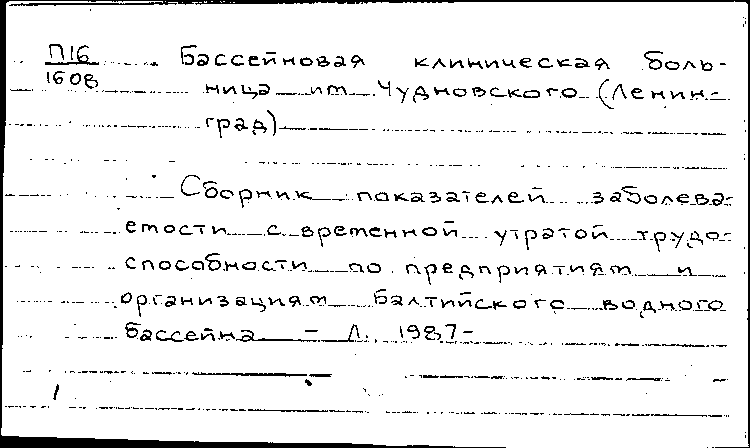 П16 Бассейновая клиническая боль-
1608 ница им. Чудновского (Ленин-
град)
Сборник показателей заболева-
емости с временной утратой трудо-
способности по предприятиям и
организациям Балтийского водного
бассейна - Л., 1987-
1